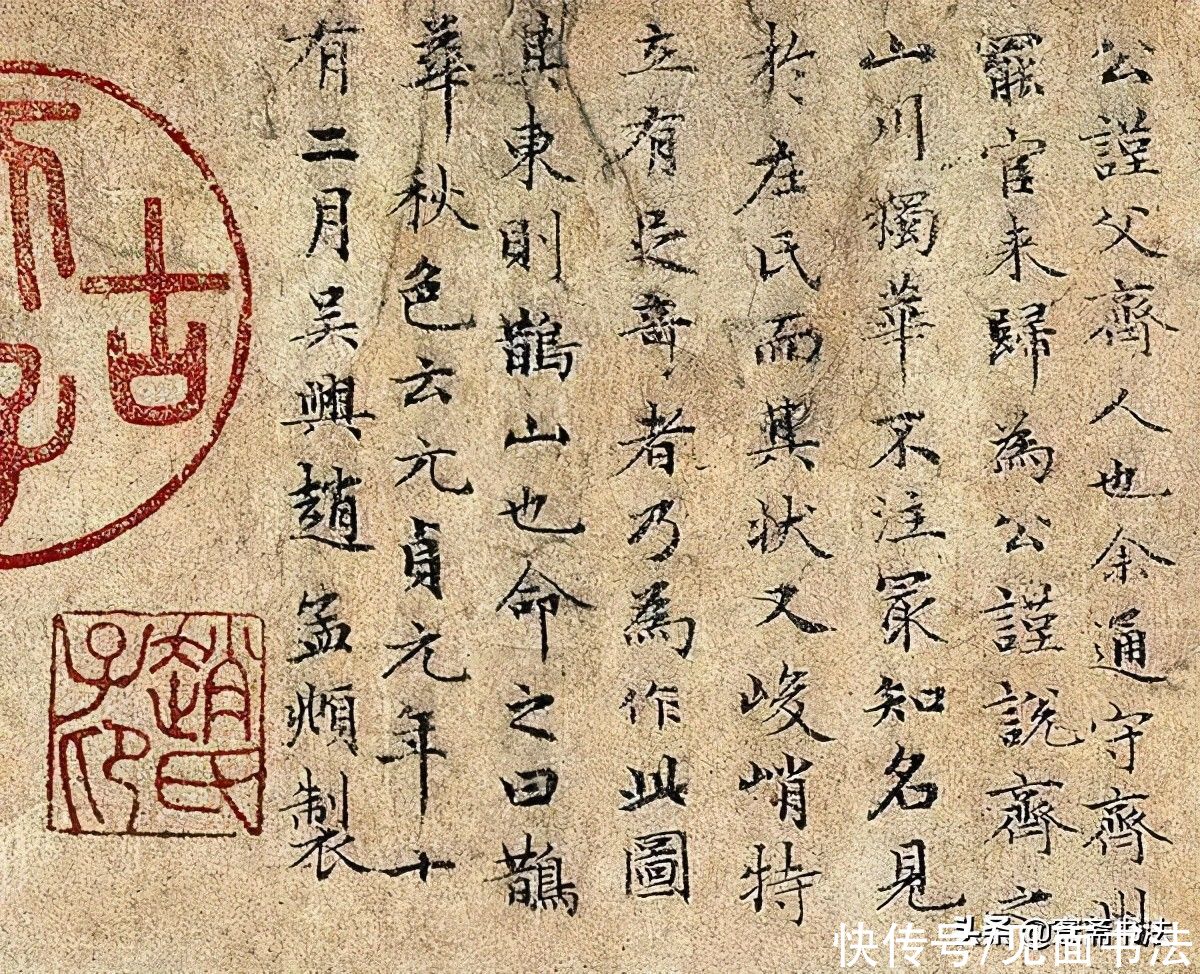 公謹父齊人也余通守齊州
罷官来歸為公謹說齊之
山川獨華不注最知名見
於左氏而其状又峻峭特
立有足奇者乃為作此圖
其東則鵲山也命之曰鵲
華秋色云元貞元年十
有二月吴興趙孟頫製
趙氏子昂
快传号/见面书法